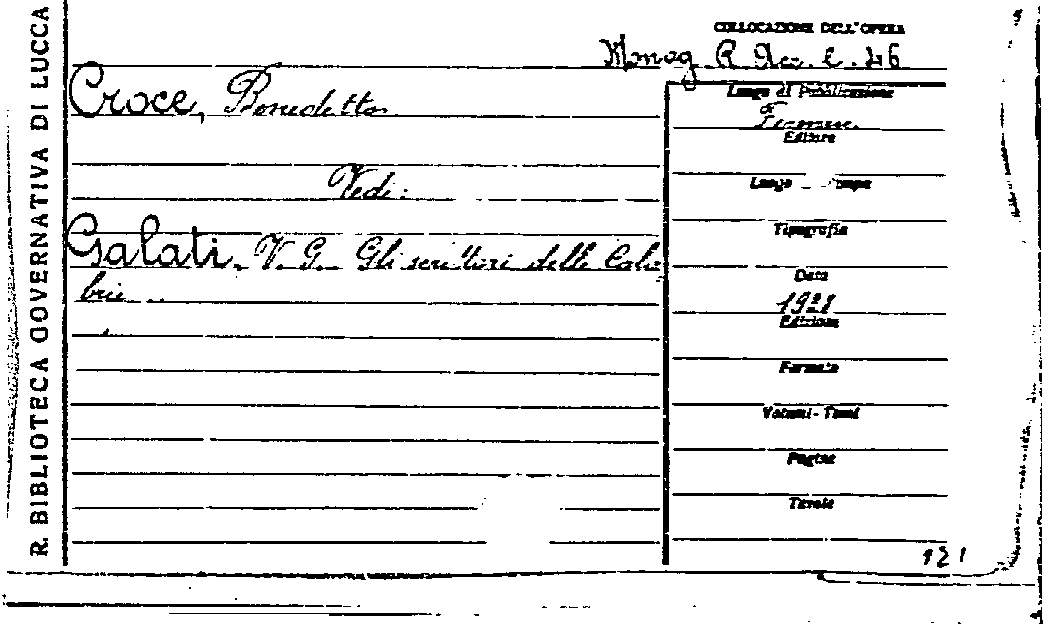 R. BIBLIOTECA GOVERNATIVA DI LUCCA
COLLOCAZIONE DELL'OPERA
Monog. R
Croce, Benedetto
Vedi:
Galati, V. G. Gli scrittori delle Cala
brie
Luogo di Pubblicazione
Firenze
Editore
Luogo Stampa
Tipografia
Data
1928
Edizione
Formato
Volumi - Tomi
Pagine
Tavole
121